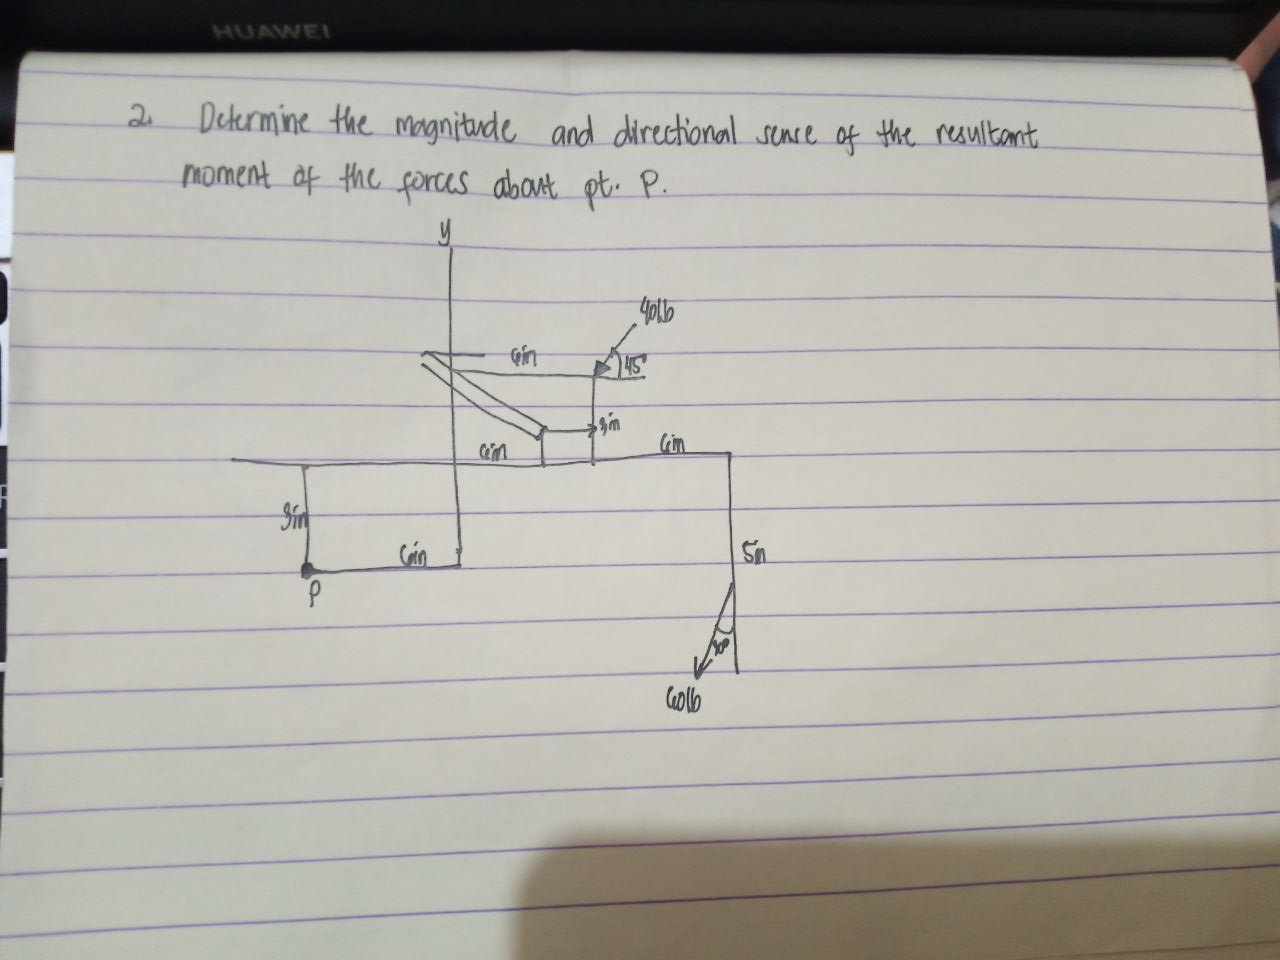 HUAWEI
2. Determine the magnitude and directional sense of the resultant
moment of the forces about pt. P.
y
40lb
6in
45°
3in
6in
6in
3in
6in
5in
P
30°
60lb